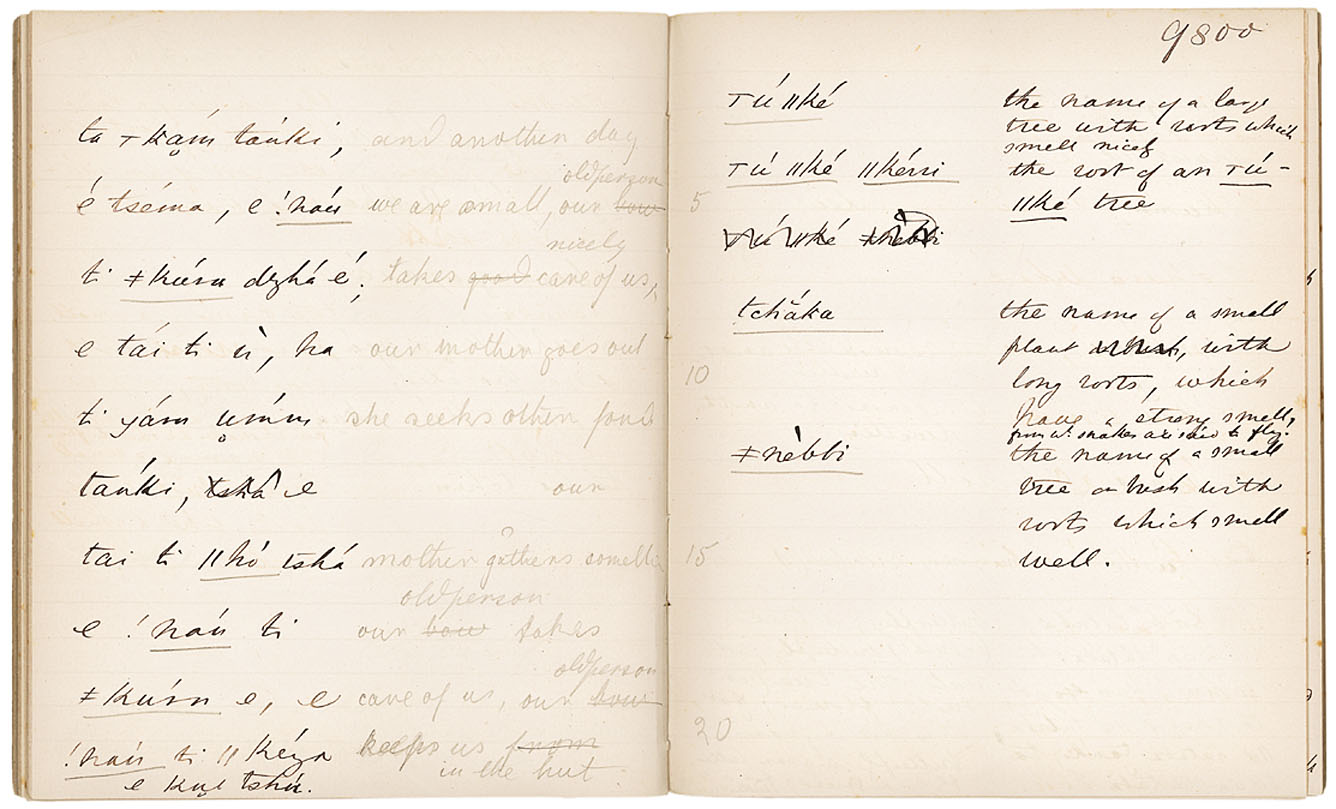 ta ┬kạ́m táńki, and another day
old person
é tséma, e !náu we are small, our bow
nicely
ti ǂkúrn dzhá é; takes good care of us,
e tái ti ù, ha our mother goes out
ti yám ụḿm she seeks other food
táńki, tshâ e our
tai ti ǁhó tshá mother gathers somethi
old person
e !náu ti our bow takes
old person
ǂkúrn e, e care of us, our bow
!náu ti ǁkéya keeps us from
e kụi tshú. in the hut.
9800
┬ú ǁké the name of a large
tree with roots which
smell nicely
┬ú ǁké ǁkérri the root of an ┬ú-
5 ǁké tree
┬ú ǁké ǂnèbbi
tchǎka the name of a small
plant or bush, with
10 long roots, which
have a strong smell,
from wh. snakes are said to fly.
ǂnèbbi the name of a small
tree or bush with
roots which smell
15 well.
20